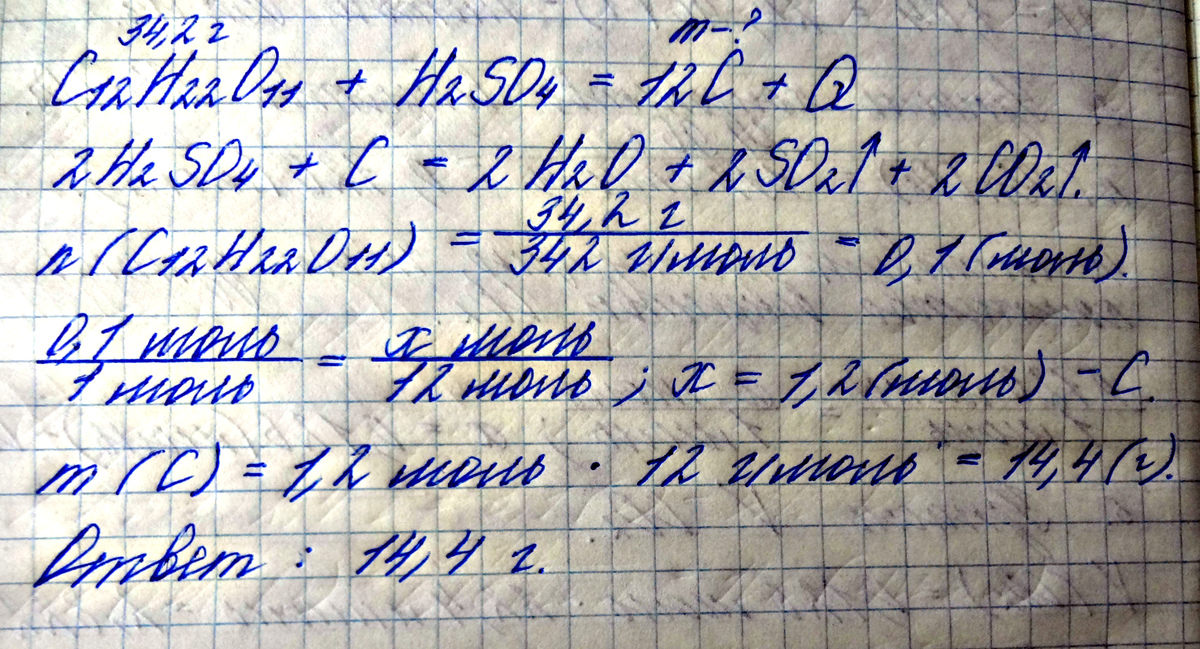 34,2 г m-?
C12H22O11 + H2SO4 = 12C + Q
2H2SO4 + C = 2H2O + 2SO2↑ + 2CO2↑.
n(C12H22O11) = 34,2 г / 342 г/моль = 0,1 (моль).
0,1 моль / 1 моль = x моль / 12 моль ; x = 1,2 (моль) - C.
m(C) = 1,2 моль · 12 г/моль = 14,4 (г).
Ответ : 14,4 г.